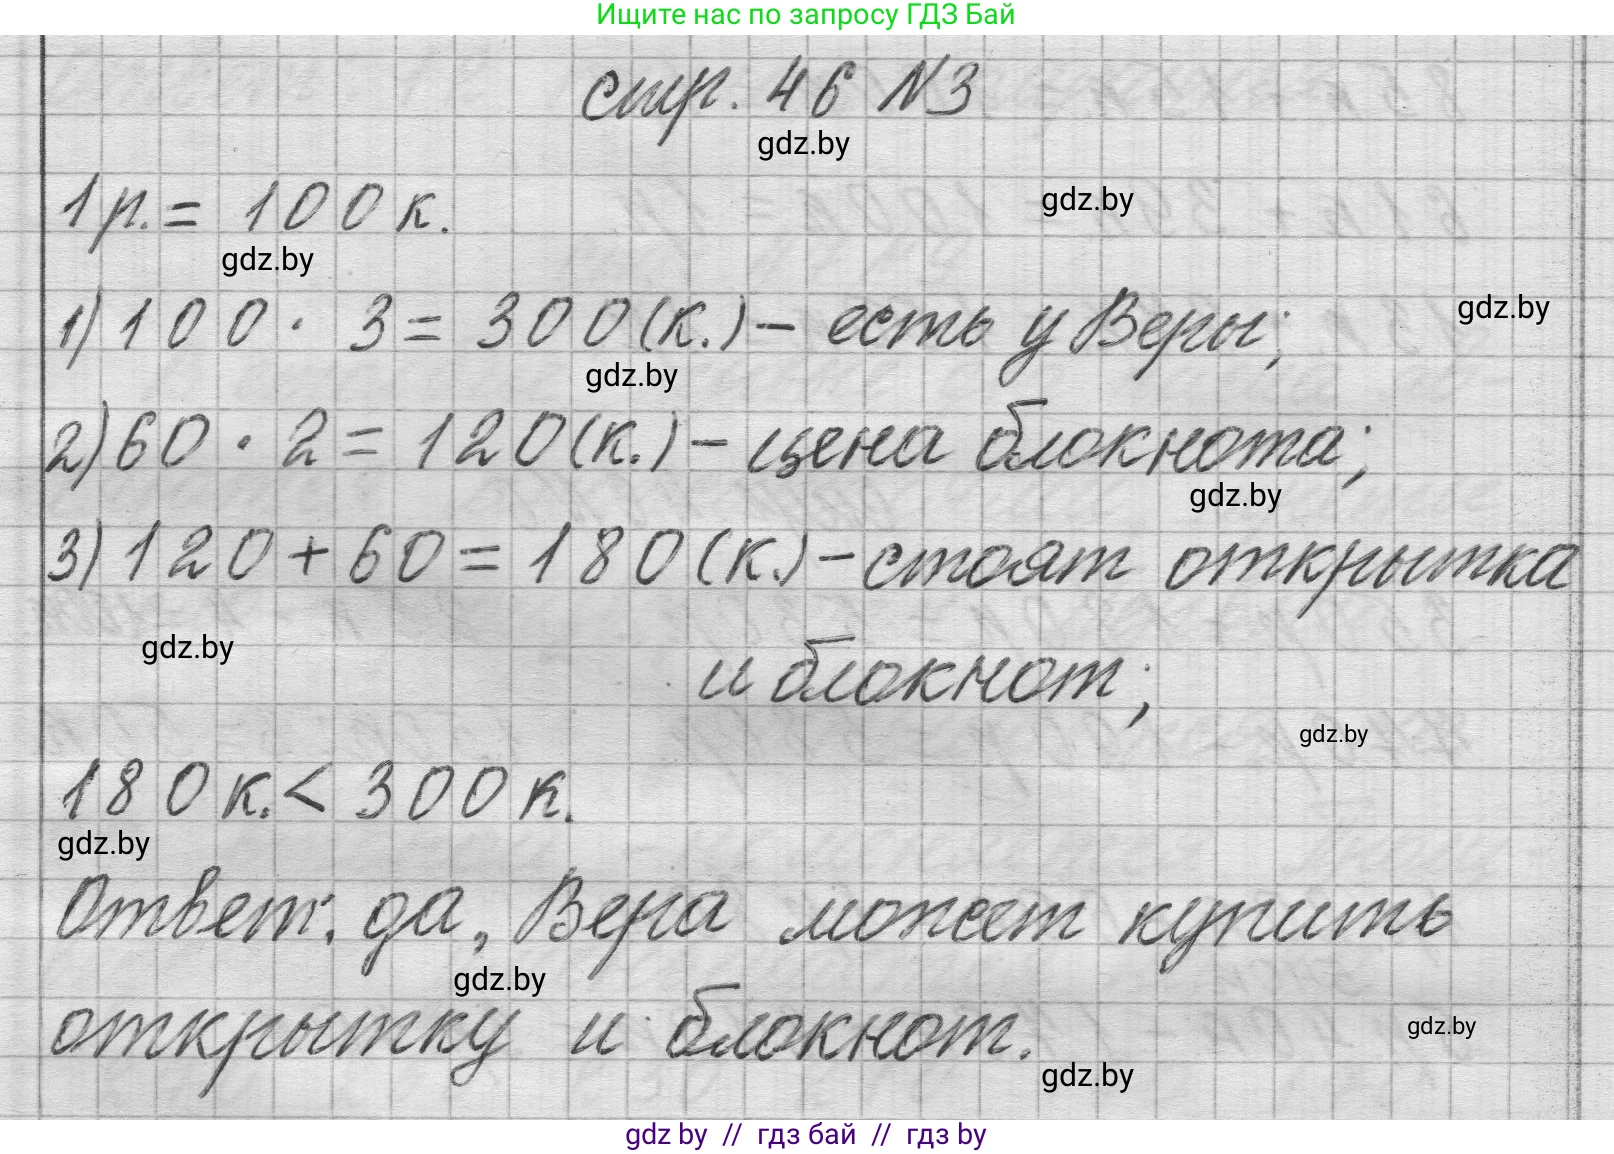 Ищите нас по запросу ГДЗ Бай
стр. 46 №3
gdz.by
gdz.by
1 р. = 100 к.
gdz.by
gdz.by
1) 100 · 3 = 300 (к.) – есть у Веры;
gdz.by
2) 60 · 2 = 120 (к.) – цена блокнота;
gdz.by
3) 120 + 60 = 180 (к.) – стоят открытка
gdz.by
и блокнот;
gdz.by
180 к. < 300 к.
gdz.by
Ответ: да, Вера может купить
gdz.by
открытку и блокнот.
gdz.by
gdz.by
gdz by // гдз бай // гдз by